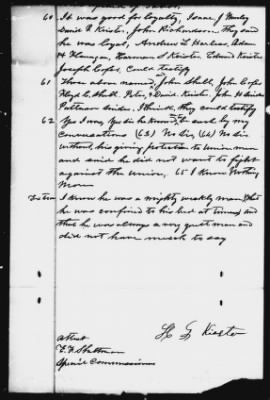 60 It was good for loyalty, Isaac J
David P. Keister. John Richardson. they said
he was loyal, Andrew L Harless, Adam
H Flanagan, Harmon S Keister Edward Keister
Joseph Cofer. Could testify
61 Those above named, and John Shell, John Cofer
Floyd L. Shell. Peter, & David Keister, John H Snider
Pattison Snider. I think, they could testify
62 Yes I was, Yes Sir he knew it to each by my
conversations (63) No Sir, (64) No Sir
without his giving protection to Union men
and said he did not want to fight
against the Union, 65 I know Nothing
More
Extra I know he was a mighty weakly man that
he was confined to his bed at times, and
that he was always a very quiet man and
did not have much to say
Keister
attest
Special Commissioner